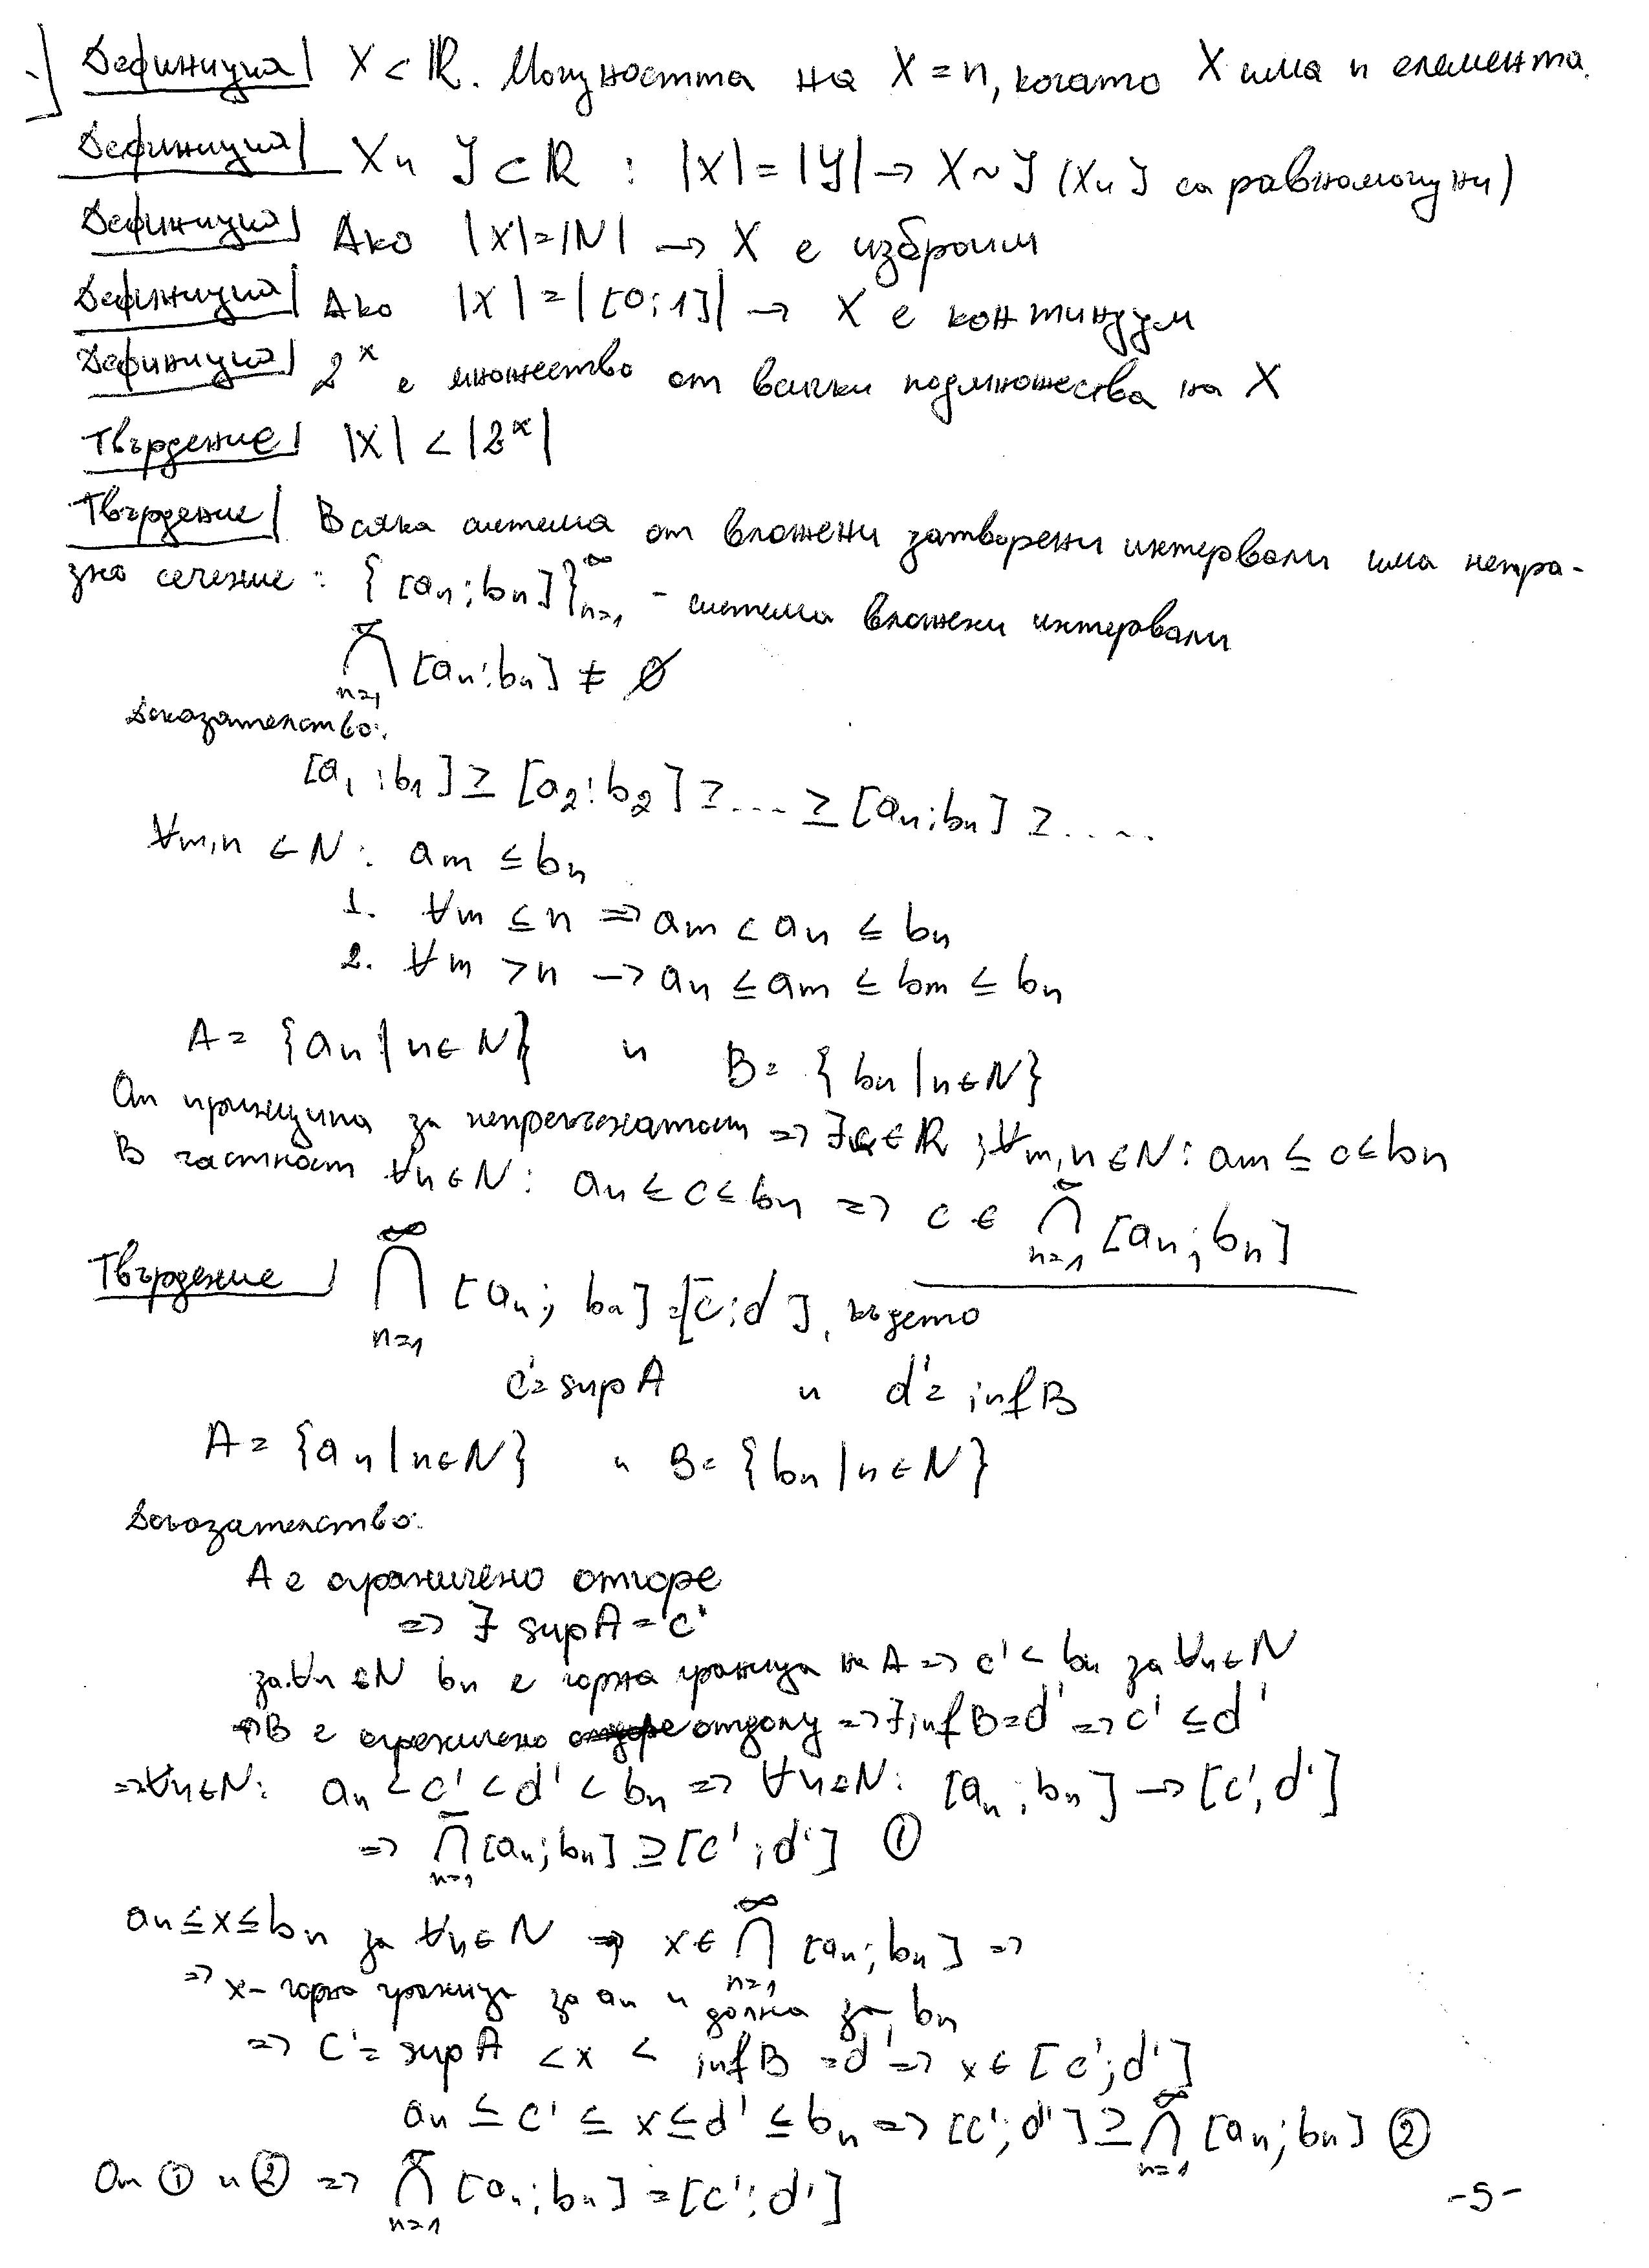 Дефиниция| X ⊂ ℝ. Мощността на X = n, когато X има n елемента.
Дефиниция| X и Y ⊂ ℝ : |X| = |Y| → X ~ Y (X и Y са равномощни)
Дефиниция| Ако |X| = |N| → X е изброим
Дефиниция| Ако |X| = |[0;1]| → X е континуум
Дефиниция| 2^x е множество от всички подмножества на X
Твърдение| |X| < |2^x|
Твърдение| Всяка система от вложени затворени интервали има непра-
зно сечение: {[an;bn]}∞n=1 - система вложени интервали
∞⋂n=1 [an;bn] ≠ ∅
Доказателство:
[a1;b1] ⊇ [a2;b2] ⊇ .... ⊇ [an;bn] ⊇ .....
∀m,n ∈ N: am ≤ bn
1. ∀m ≤ n ⇒ am < an ≤ bn
2. ∀m > n → an ≤ am ≤ bm ≤ bn
A = {an | n∈N} и B = {bn | n∈N}
От принципа за непрекъснатост ⇒ ∃c∈ℝ ; ∀m,n∈N: am ≤ c ≤ bn
В частност ∀n∈N: an ≤ c ≤ bn ⇒ c ∈ ∞⋂n=1 [an;bn]
Твърдение| ∞⋂n=1 [an; bn] = [c;d], където
c' = sup A и d' = inf B
A = {an | n∈N} и B = {bn | n∈N}
Доказателство:
A е ограничено отгоре
⇒ ∃ sup A = c'
за ∀n∈N bn е горна граница на A ⇒ c' < bn за ∀n∈N
⇒ B е ограничено отдолу ⇒ ∃ inf B = d' ⇒ c' ≤ d'
⇒ ∀n∈N: an < c' < d' < bn ⇒ ∀n∈N: [an;bn] → [c',d']
⇒ ∞⋂n=1 [an;bn] ⊇ [c';d'] ①
an ≤ x ≤ bn за ∀n∈N ⇒ x ∈ ∞⋂n=1 [an;bn] ⇒
⇒ x - горна граница за an и долна за bn
⇒ c' = sup A < x < inf B = d' ⇒ x ∈ [c';d']
an ≤ c' ≤ x ≤ d' ≤ bn ⇒ [c';d'] ⊇ ∞⋂n=1 [an;bn] ②
От ① и ② ⇒ ∞⋂n=1 [an;bn] = [c';d']
-5-